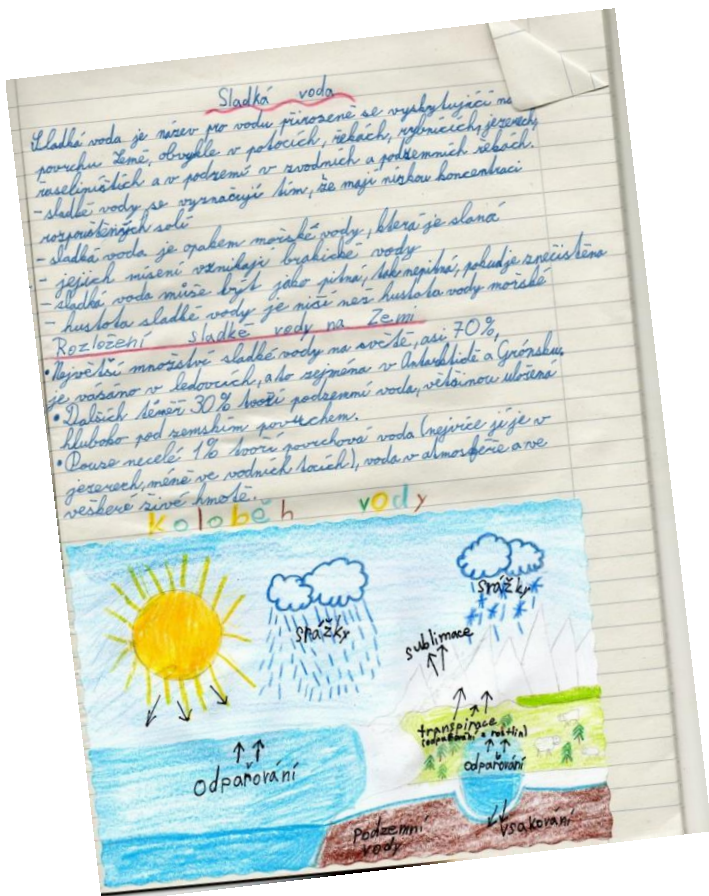 Sladká voda
Sladká voda je název pro vodu přirozeně se vyskytující na
povrchu Země, obvykle v potocích, řekách, rybnících, jezerech,
raseliništích a v podzemí v zvodních a podzemních řekách.
-sladké vody se vyznačují tím, že mají nízkou koncentraci
rozpouštěných solí
- sladká voda je opakem mořské vody, která je slaná
- jejich mísení vznikají brakické vody
- sladká voda může být jako pitná, tak nepitná, pokud je znečištěna
- hustota sladké vody je nižší než hustota vody mořské
Rozložení sladké vody na Zemi
•Největší množství sladké vody na světě, asi 70%,
je vázáno v ledovcích, a to zejména v Antarktidě a Grónsku,
•Dalších téměř 30% tvoří podzemní voda, většinou uložena
hluboko pod zemským povrchem.
•Pouze necelé 1% tvoří povrchová voda (nejvíce jí je v
jezerech, méně ve vodních tocích), voda v atmosféře a ve
veškeré živé hmotě.
koloběh vody
srážky
srážky
sublimace
transpirace
(odpařování z rostlin)
odpařování
odpařování
podzemní
vody
vsakování